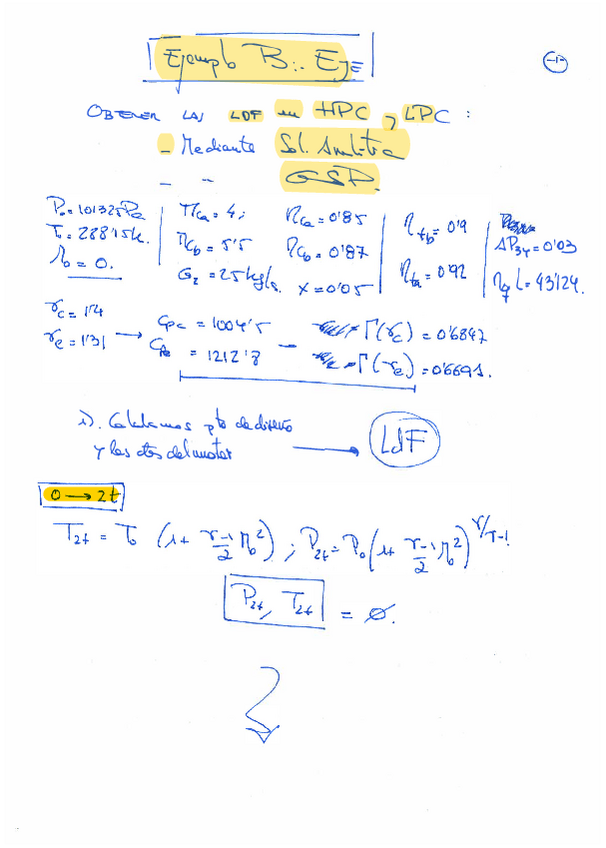 Ejemplo B:. Eje
-1-
OBTENER LAS LDF en HPC y LPC :
- Mediante Sol. Analítica
- " GSP.
P₀ = 101325 Pa
T₀ = 288'15 K.
M₀ = 0.
πca = 4;
πcb = 5'5
G₂ = 25 kg/s.
ηca = 0'85
ηcb = 0'87
x = 0'05
ηtb = 0'9
ηta = 0'92
ΔP34 = 0'03
ηq L = 43'124.
γc = 1'4
γe = 1'31
→ Cpc = 1004'5
Cpe = 1212'8
- Γ(γc) = 0'6847
Γ(γe) = 0'6691.
1). Calculamos pto de diseño
y las ctes del motor → LdF
0 → 2t
T2t = T₀ (1 + γ-1/2 M₀²) ; P2t = P₀ (1 + γ-1/2 M₀²)^γ/γ-1
P2t, T2t = ∅.